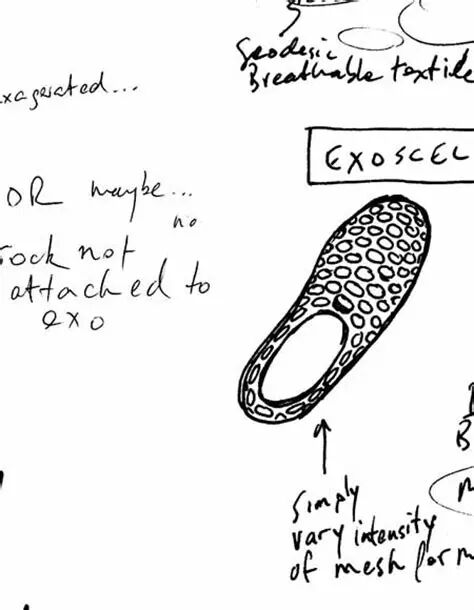 Geodesic
Breathable textile
exagerated...
EXOSCEL
OR maybe...
no
sock not
attached to
exo
B
Simply
vary intensity
of mesh for m